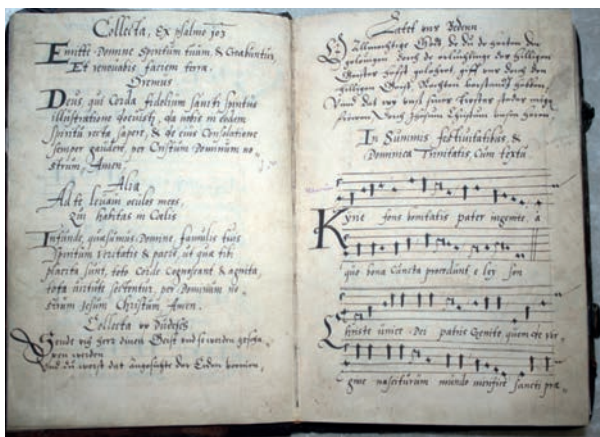 Collecta, Ex psalmo 103
Emitte Domine Spiritum tuum, & Creabuntur,
Et renovabis faciem terra.
Oremus
Deus, qui Corda fidelium sancti spiritus
illustratione docuisti, da nobis in eodem
spiritu recta sapere, & de eius Consolatione
semper gaudere, per Cristum Dominum no-
strum, Amen.
Alia
Ad te levavi oculos meos,
Qui habitas in Coelis
Infunde, quaesumus Domine, famulis tuis
Spiritum veritatis & pacis, ut qua tibi
placita sunt, toto Corde Cognoscant & agnita
tota sectentur, per Dominum no-
strum Jesum Christum Amen.
Collecta vp düdesch
Sende vth here dinen Geist vnd se werden gescha-
pen werden
der Erden
Allmechtige Godt, de du de herten der
gelövigen dorch de der hilligen
Geister giff vns dorch den
hilligen Geist,
Vnd dat wy vns
dorch Jhesum Christum vnsen heren,
In Summis festivitatibus, &
Dominica Trinitatis, Cum textu.
Kyrie fons bonitatis pater ingenite, a
quo bona Cuncta procedunt e ley son
Christe unice Dei patris Genite quem ex vir-
gine nasciturum mundo mirifice sancti pro-